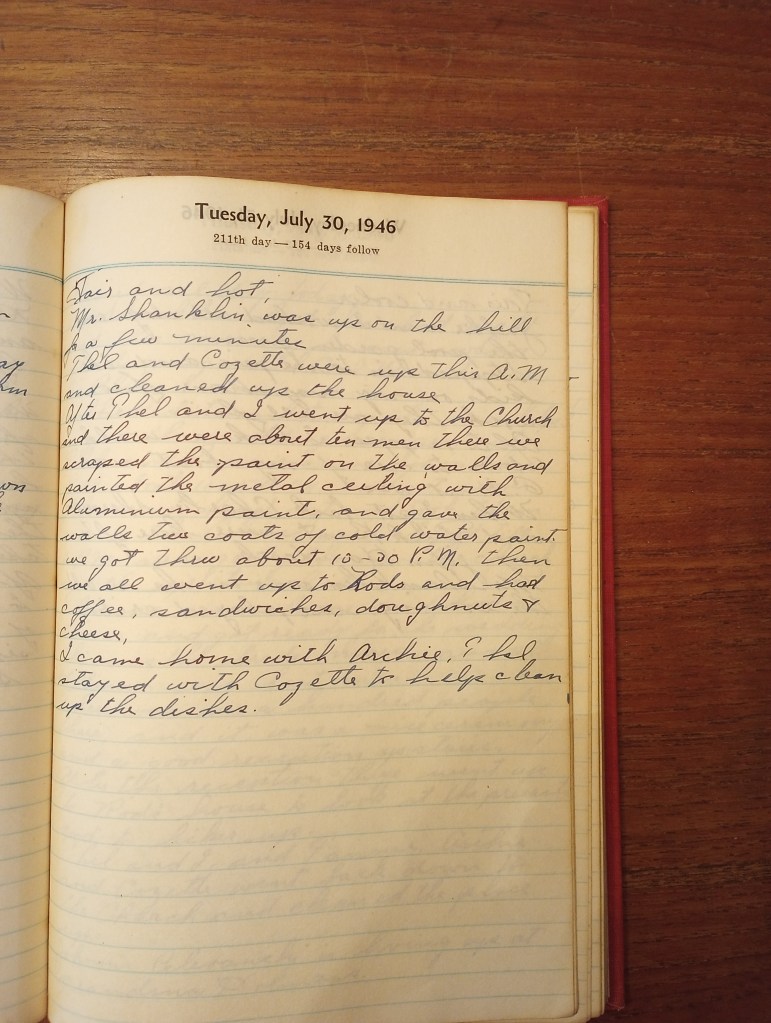 Tuesday, July 30, 1946
211th day — 154 days follow
Fair and hot,
Mr. Shanklin was up on the hill
fo a few minutes
Thel and Cozette were up this A.M
and cleaned up the house
After Thel and I went up to the Church
and there were about ten men there we
scraped the paint on the walls and
painted the metal ceiling with
Aluminium paint, and gave the
walls two coats of cold water paint
we got thru about 10-30 P.M. then
we all went up to Rods and had
coffee, sandwiches, doughnuts &
cheese,
I came home with Archie, Thel
stayed with Cozette to help clean
up the dishes.